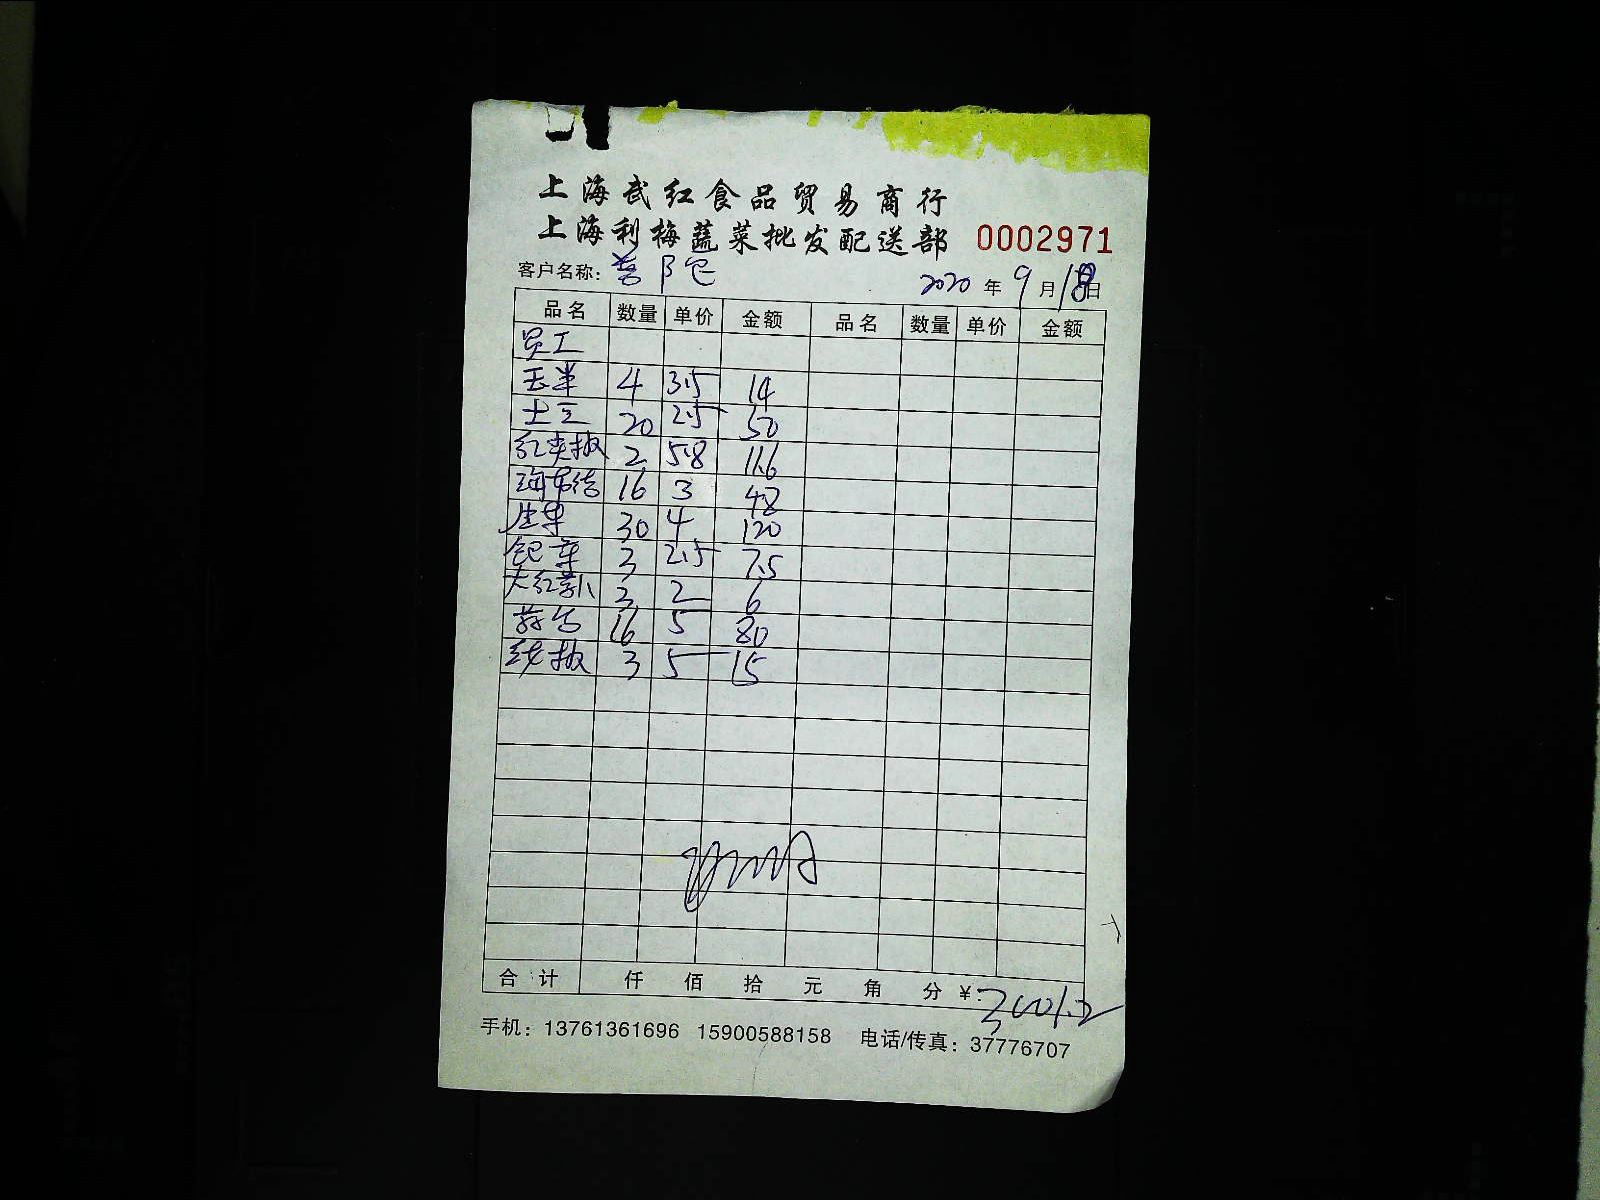 上海武红食品贸易商行
上海利梅蔬菜批发配送部 0002971
客户名称： 2020 年 9 月 18 日
品名 数量 单价 金额 品名 数量 单价 金额
员工
玉米 4 3.5 14
土豆 20 2.5 50
红尖椒 2 5.8 11.6
海带结 16 3 48
生菜 30 4 120
3 2.5 7.5
3 2 6
16 5 80
线椒 3 5 15
合计 仟 佰 拾 元 角 分 ¥：
手机：13761361696 15900588158 电话/传真：37776707